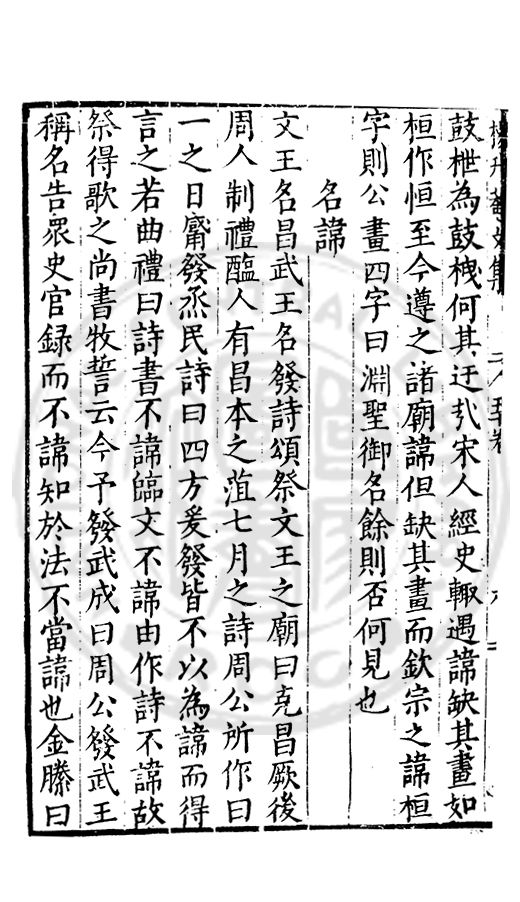 鼓枻為鼓栧何其迂哉宋人經史輙遇諱缺其畫如
桓作恒至今遵之諸廟諱但缺其畫而欽宗之諱桓
字則公畫四字曰淵聖御名餘則否何見也
名諱
文王名昌武王名發詩頌祭文王之廟曰克昌厥後
周人制禮醢人有昌本之菹七月之詩周公所作曰
一之日觱發烝民詩曰四方爰發皆不以為諱而得
言之若曲禮曰詩書不諱臨文不諱由作詩不諱故
祭得歌之尚書牧誓云今予發武成曰周公發武王
稱名告眾史官録而不諱知於法不當諱也金縢曰